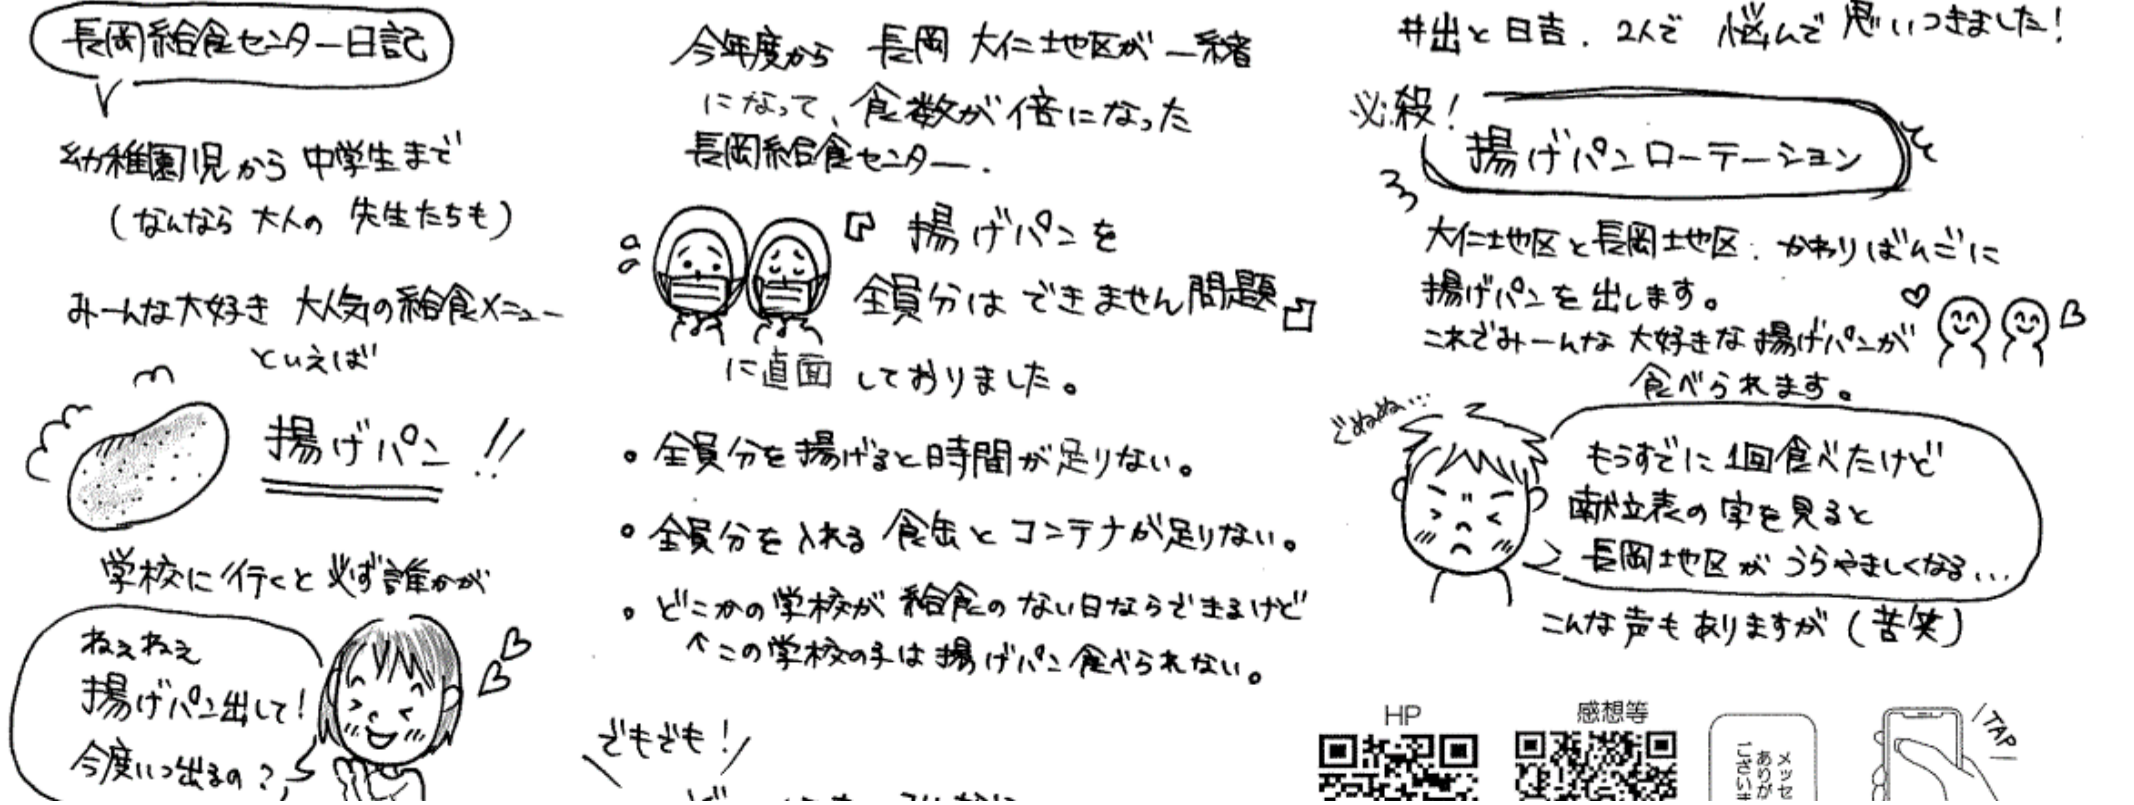 長岡給食センター日記
幼稚園児から中学生まで
(なんなら大人の先生たちも)
みーんな大好き 大人気の給食メニュー
といえば
揚げパン!!
学校に行くと必ず誰かが
ねぇねぇ
揚げパン出して!
今度いつ出るの?
今年度から 長岡 大仁地区が一緒
になって、食数が倍になった
長岡給食センター.
『揚げパンを
全員分はできません問題』
に直面しておりました。
・全員分を揚げると時間が足りない。
・全員分を入れる食缶とコンテナが足りない。
・どこかの学校が給食のない日ならできるけど
↑この学校の子は揚げパン食べられない。
でもでも!
井出と日吉.2人で 悩んで思いつきました!
必殺!
揚げパンローテーション
大仁地区と長岡地区.かわりばんこに
揚げパンを出します。
これでみーんな大好きな揚げパンが
食べられます。
ぐぬぬ…
もうすでに1回食べたけど
献立表の字を見ると
長岡地区がうらやましくなる...
こんな声もありますが(苦笑)
HP
感想等
メッセ
ありが
ございま
TAP